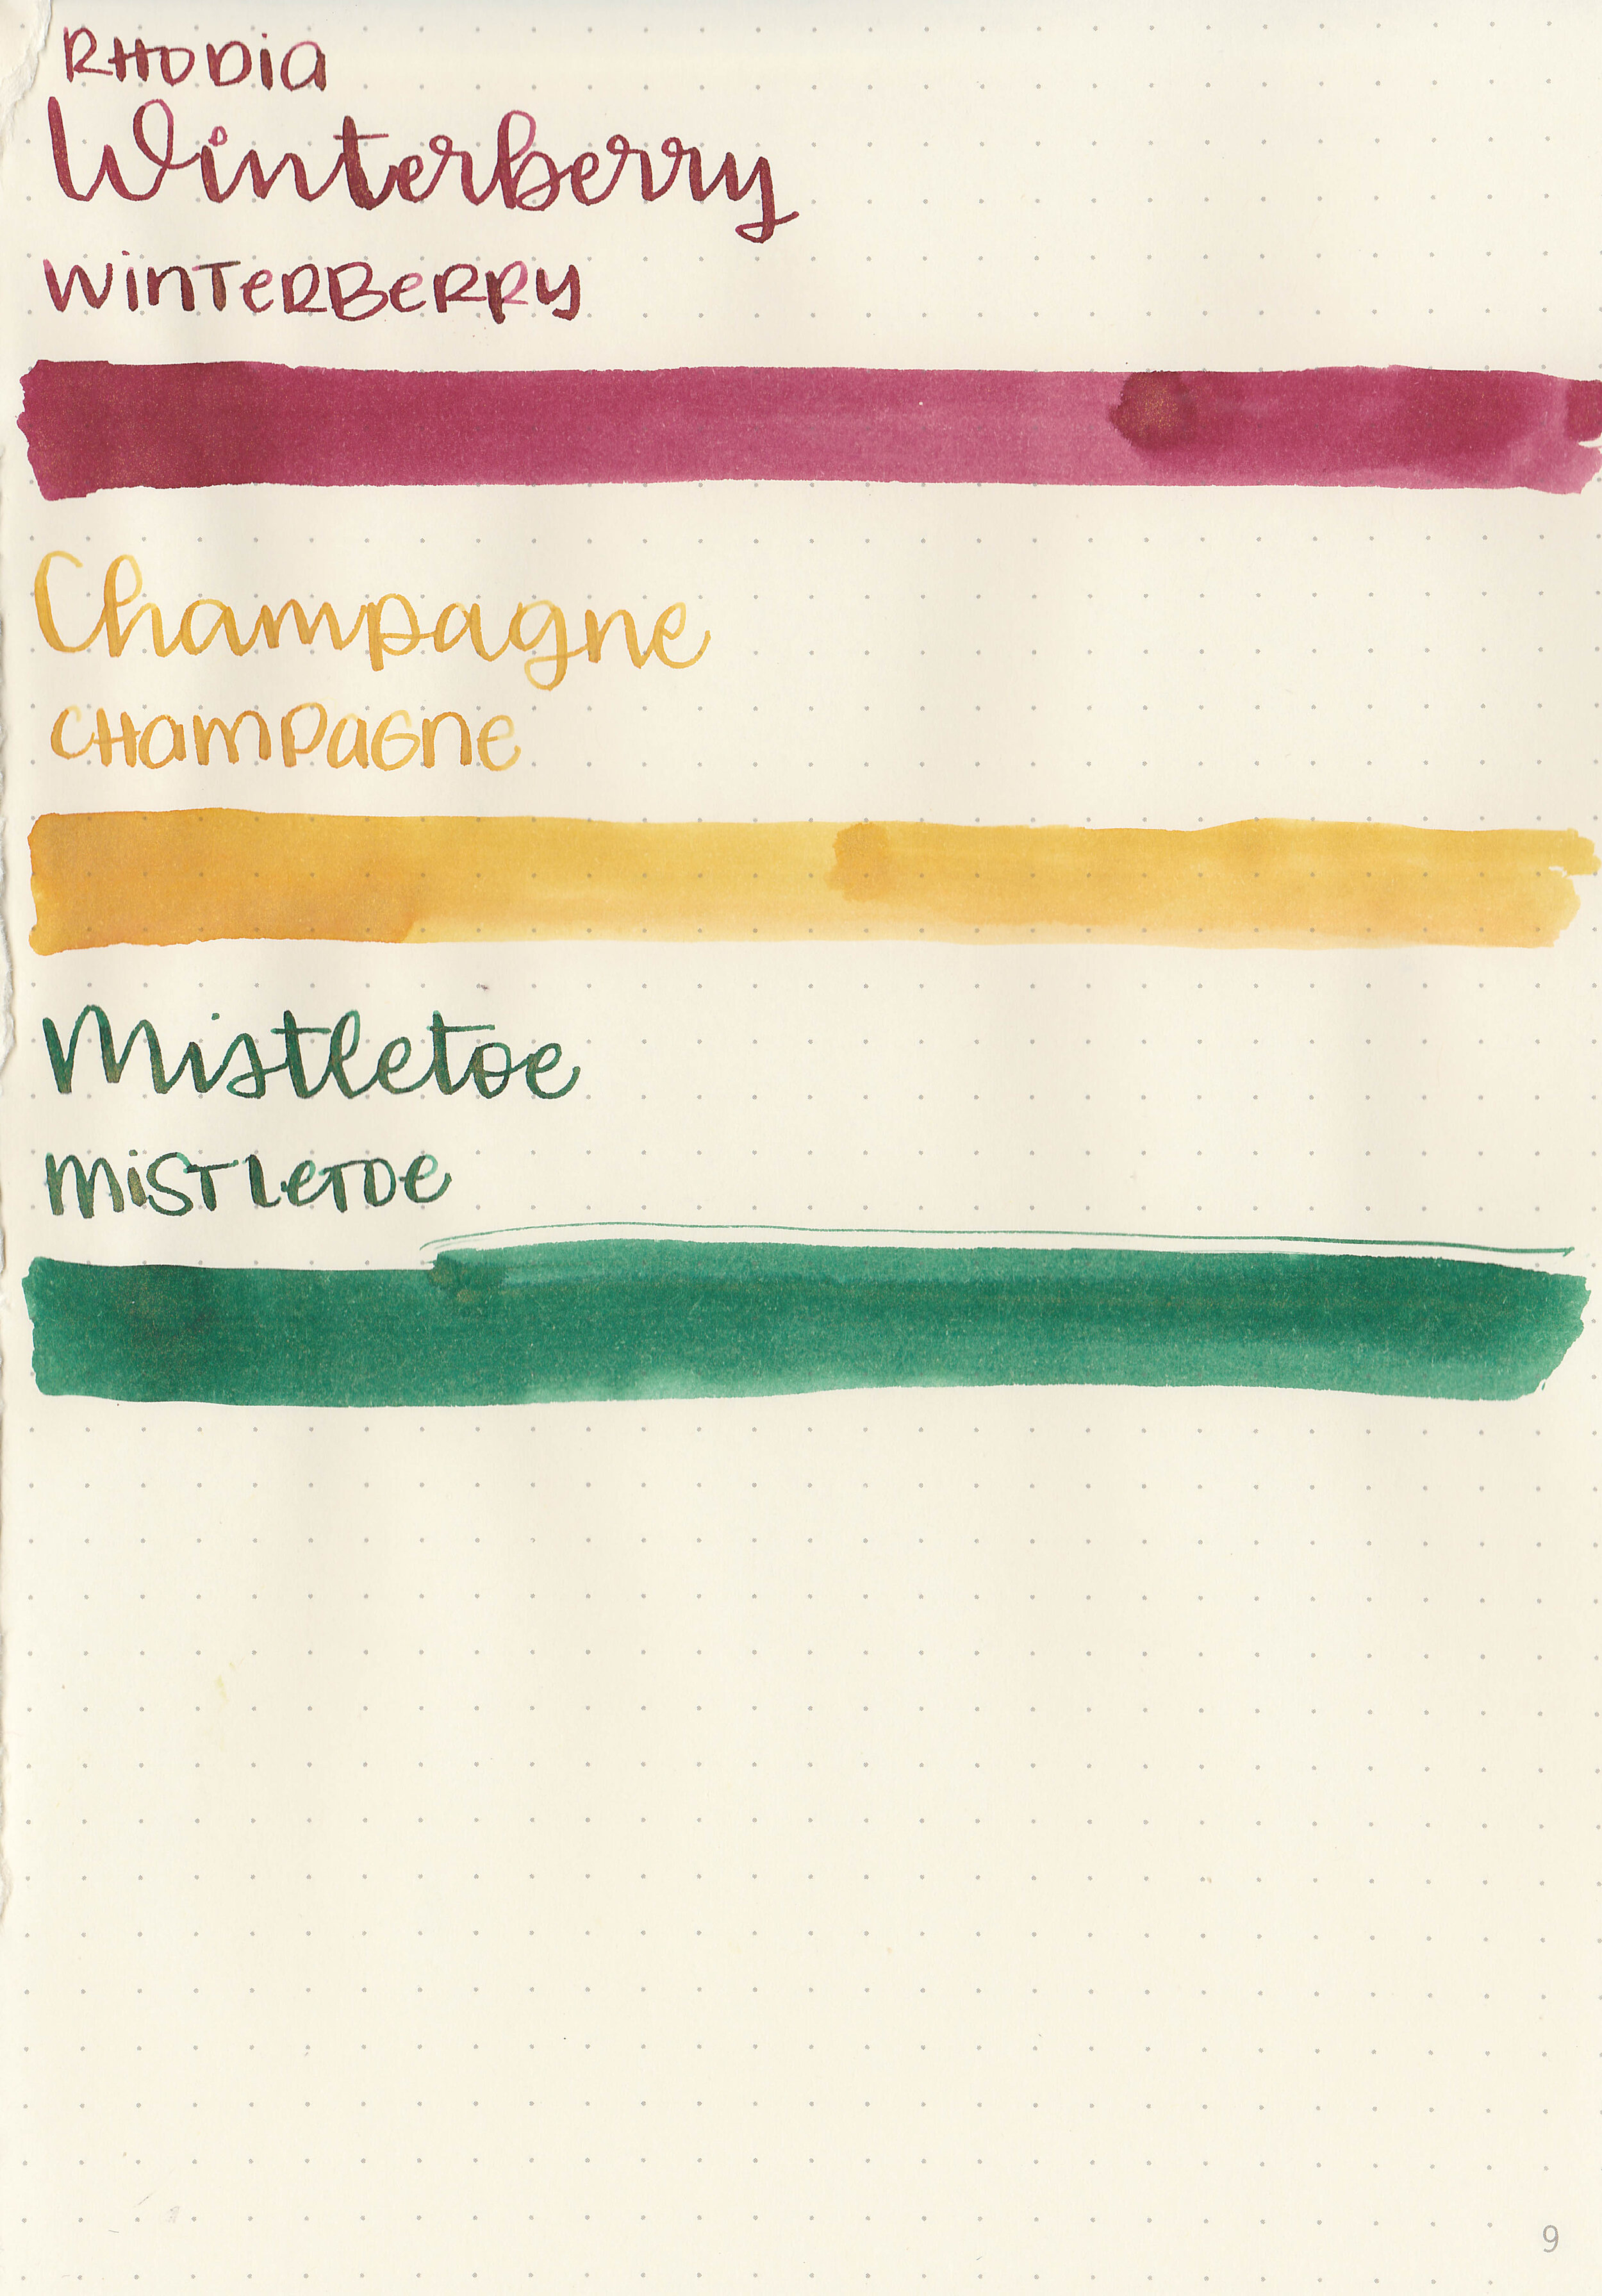 RHODIA
Winterberry
WINTERBERRY
Champagne
CHAMPAGNE
Mistletoe
MISTLETOE
9